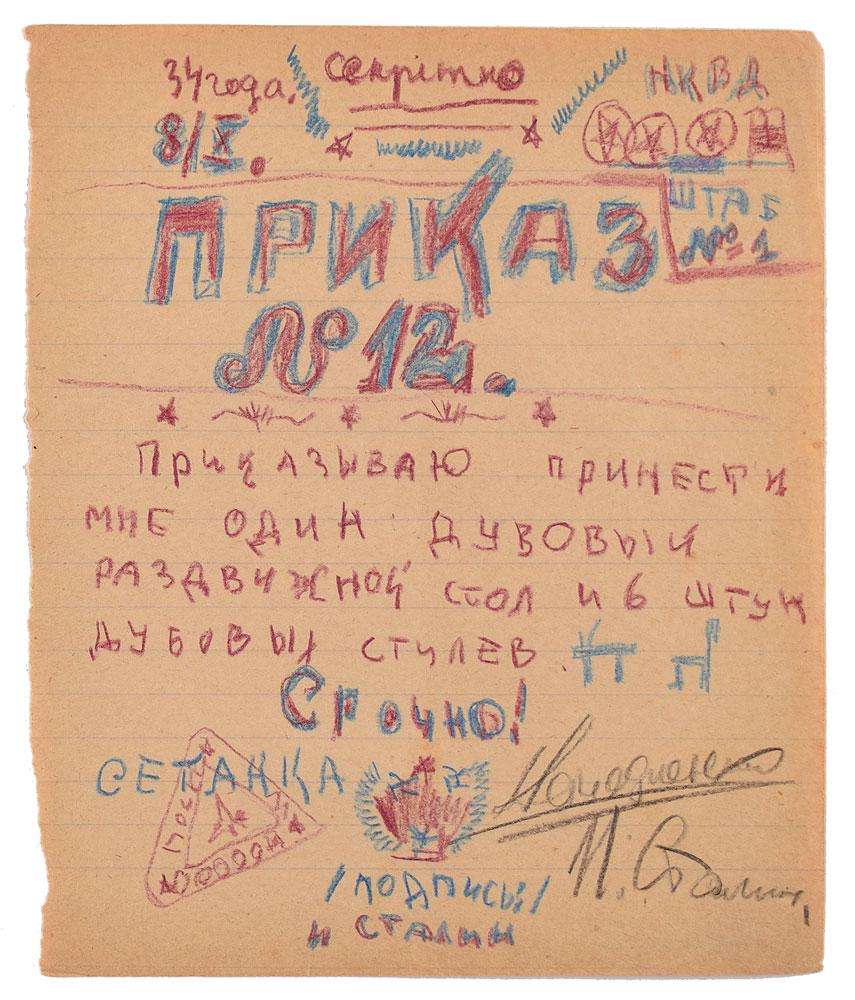 34 года. Секретно НКВД
8/X.
ШТАБ
№ 1
ПРИКАЗ
№ 12.
ПРИКАЗЫВАЮ ПРИНЕСТИ
МНЕ ОДИН ДУБОВЫЙ
РАЗДВИЖНОЙ СТОЛ И 6 ШТУК
ДУБОВЫХ СТУЛЕВ
Срочно!
СЕТАНКА
И. Сталин
/ПОДПИСЬ:/
И СТАЛИН